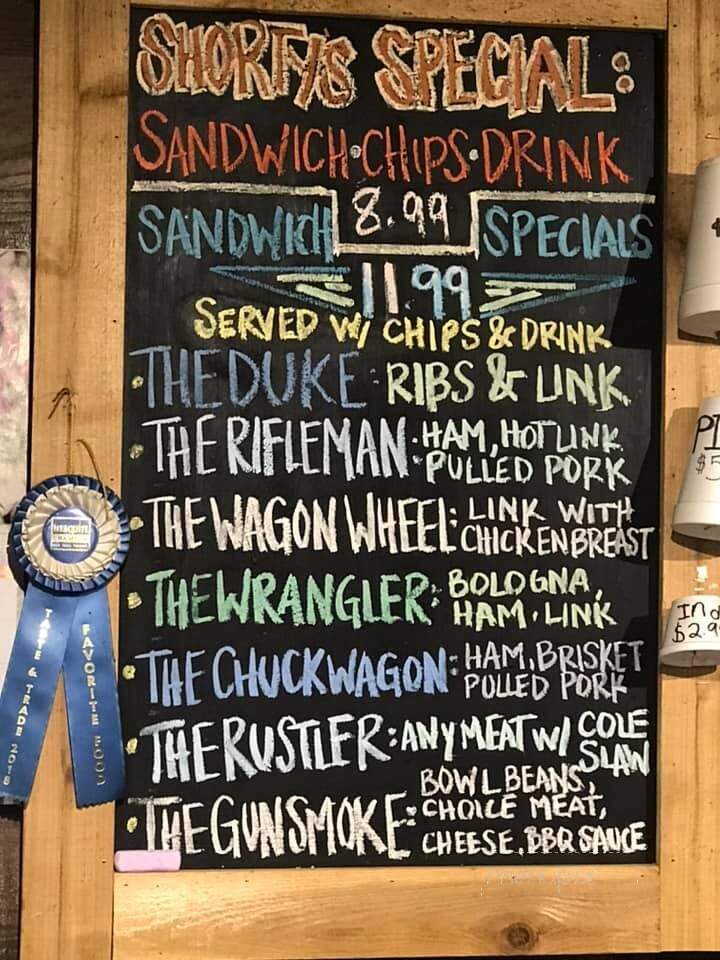 SHORTYS SPECIAL:
SANDWICH•CHIPS•DRINK
8.99
SANDWICH SPECIALS
11.99
SERVED W/ CHIPS & DRINK
• THE DUKE: RIBS & LINK
• THE RIFLEMAN: HAM, HOT LINK
PULLED PORK
• THE WAGON WHEEL: LINK WITH
CHICKEN BREAST
• THE WRANGLER: BOLOGNA,
HAM, LINK
• THE CHUCKWAGON: HAM, BRISKET
PULLED PORK
• THE RUSTLER: ANY MEAT W/ COLE
SLAW
• THE GUNSMOKE: BOWL BEANS,
CHOICE MEAT,
CHEESE, BBQ SAUCE
TASTE & TRADE 2018
FAVORITE FOOD
$2.9